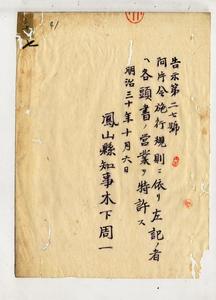 告示第二七號
阿片令施行規則ニ依リ左記ノ者
ヘ各頭書ノ營業ヲ特許ス
明治三十年十月六日
鳳山縣知事木下周一